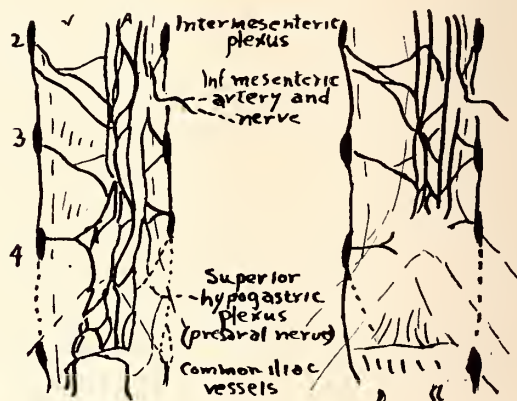 2
Intermesenteric
plexus
Inf mesenteric
artery and
nerve
3
4
Superior
hypogastric
plexus
(presaral nerve)
common iliac
vessels